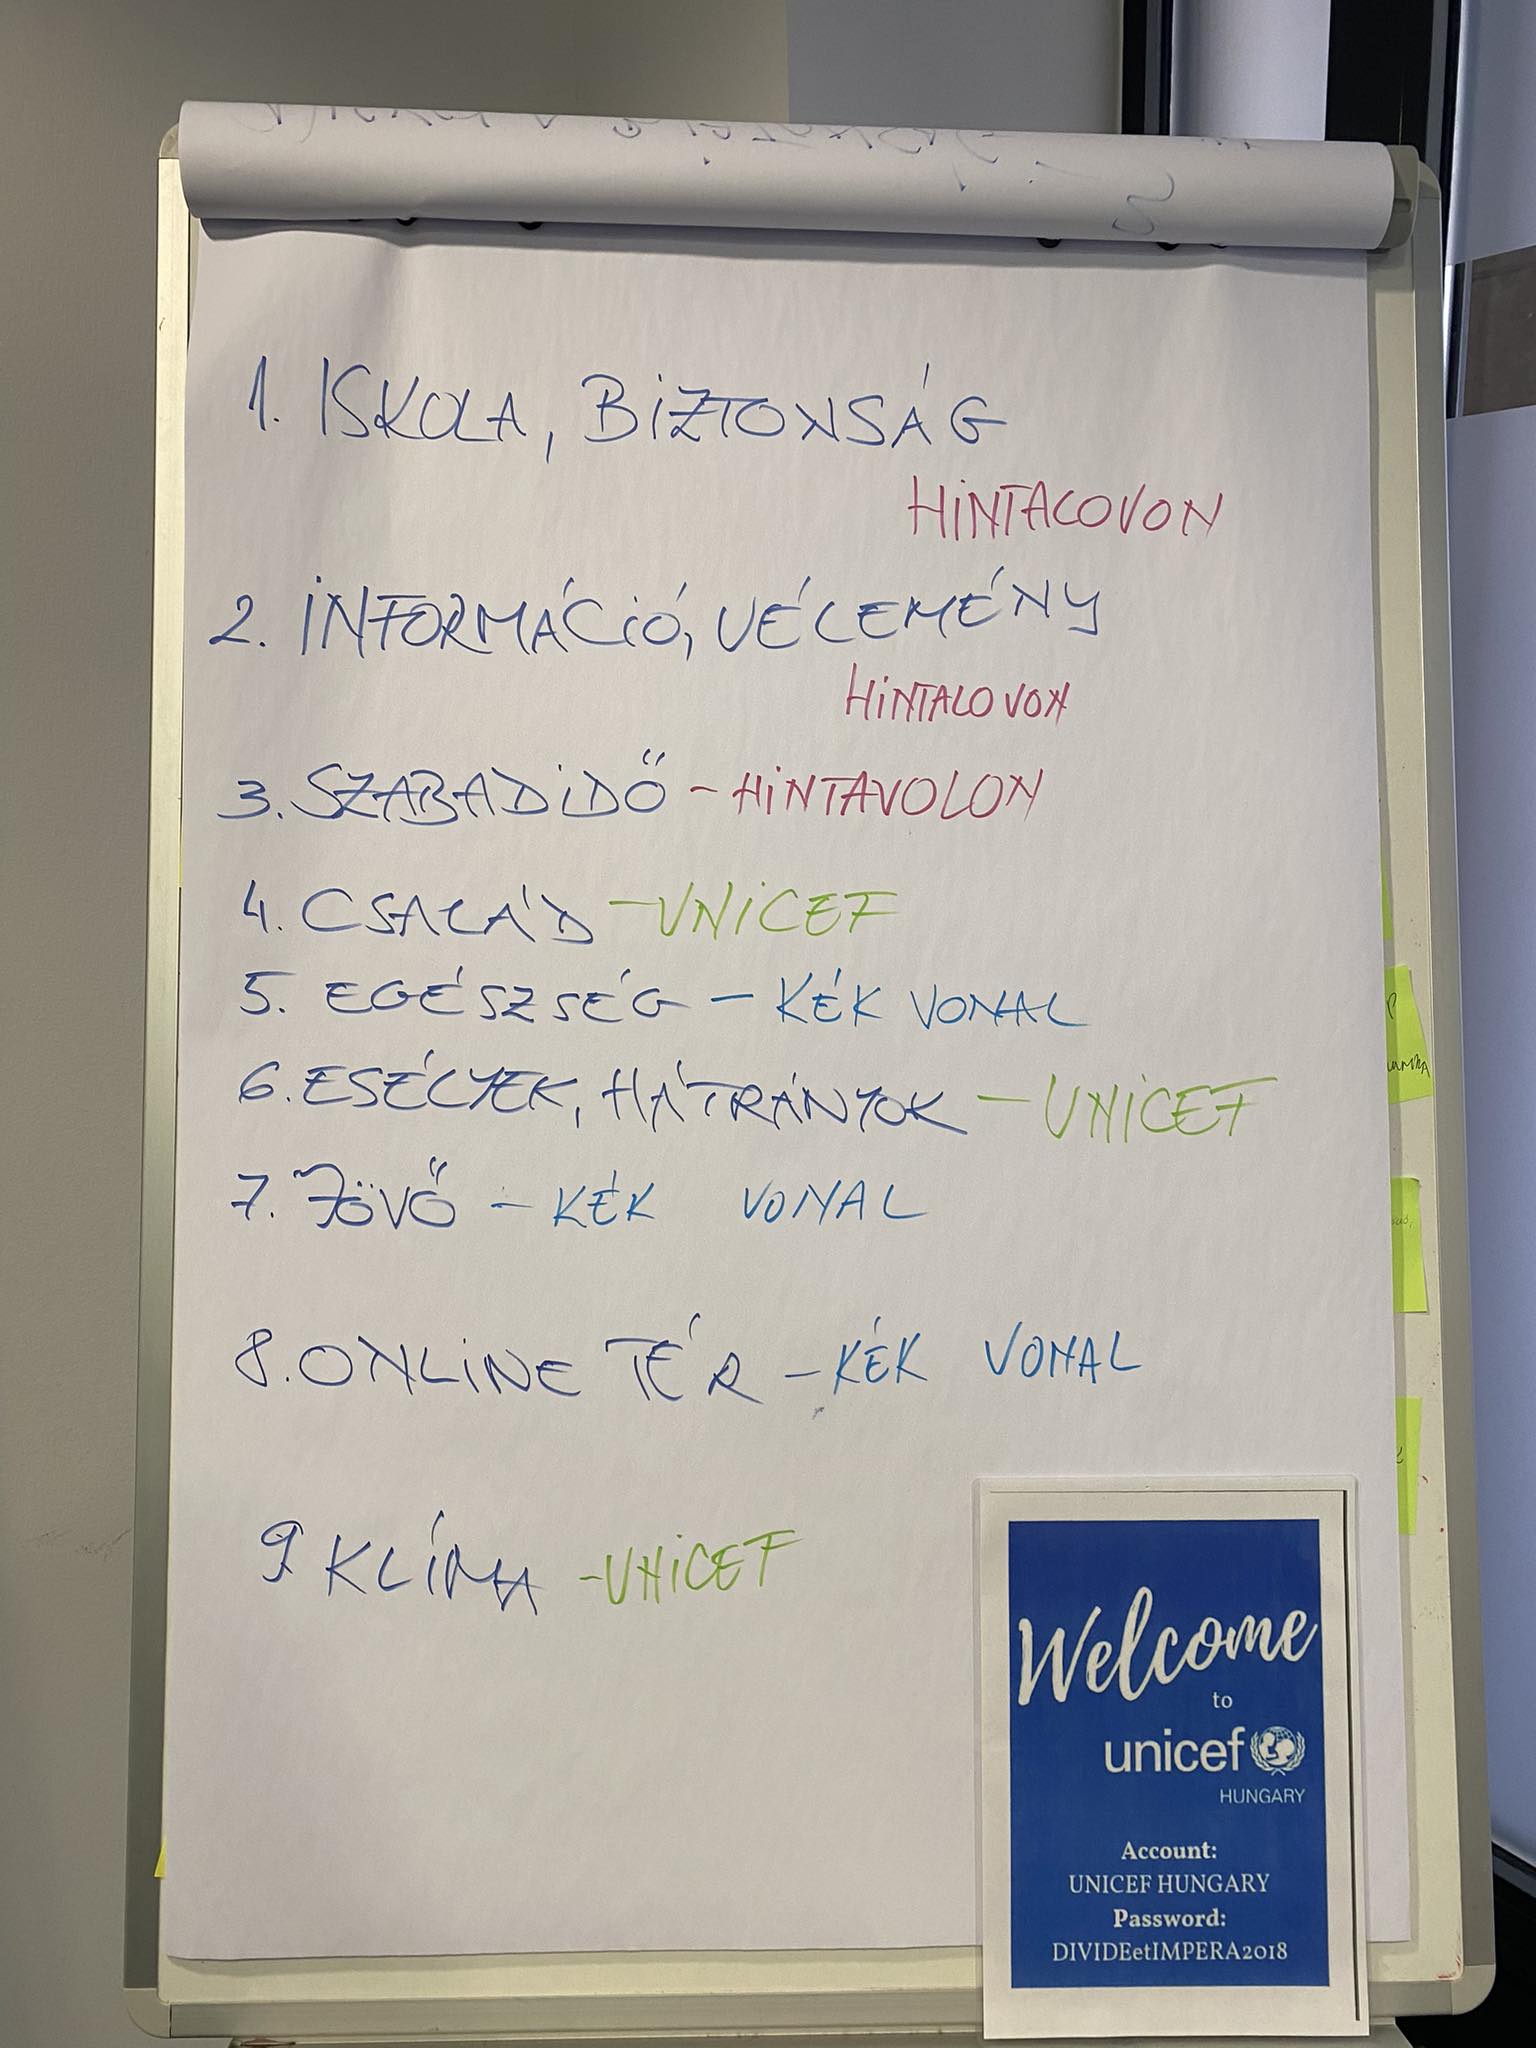 1. ISKOLA, BIZTONSÁG
HINTALOVON
2. INFORMÁCIÓ, VÉLEMÉNY
HINTALOVON
3. SZABADIDŐ - HINTAVOLON
4. CSALÁD - UNICEF
5. EGÉSZSÉG - KÉK VONAL
6. ESÉLYEK, HÁTRÁNYOK - UNICEF
7. JÖVŐ - KÉK VONAL
8. ONLINE TÉR - KÉK VONAL
9 KLÍMA - UNICEF
Welcome
to
unicef
HUNGARY
Account:
UNICEF HUNGARY
Password:
DIVIDEetIMPERA2018